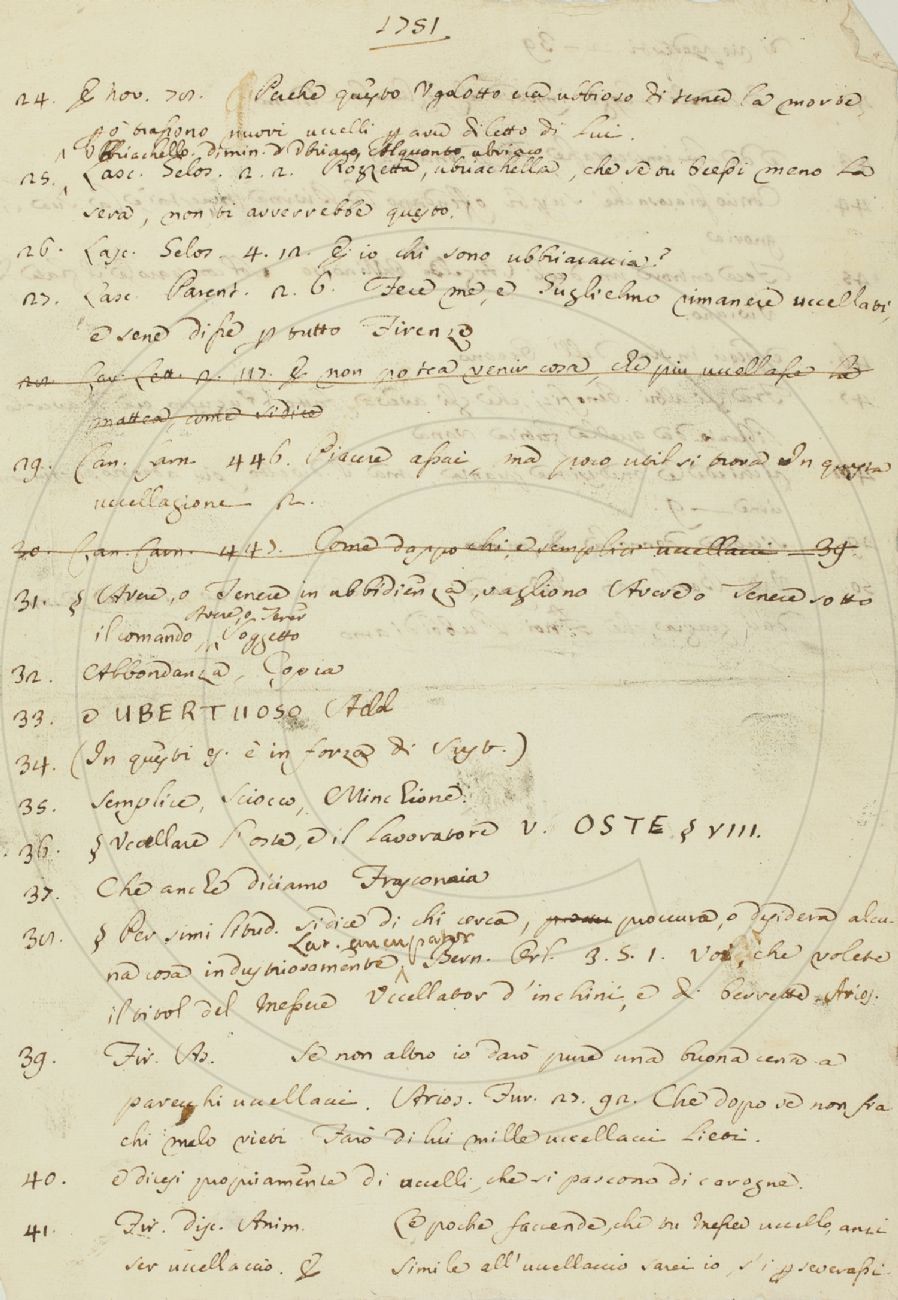 1751
24. & nov. 78. Perché questo Ugolotto era ubbioso di temer la morte,
si trassono nuovi uccelli p aver diletto di lui.
Ubbriachello. dimin. d'Ubriaco, Alquanto ubriaco
25. Lasc. Gelos. 2. 2. Rozzetta, ubriachella, che se tu beessi meno la
sera, non ti avverrebbe questo.
26. Lasc. Gelos. 4. 12. E io chi sono ubbriacaccia?
27. Lasc. Parent. 2. 6. Fece me, e Guglielmo rimanere uccellati,
e sene disse p tutto Firenze
28. Car. Lett. 2. 117. & non potea venir cosa, che più uccellasse la
mattea, come si dice
29. Can. Carn. 446. Piacere assai, ma poco util si trova In questa
uccellagione 2.
30. Can. Carn. 447. Come dappochi, e semplici uccellacci 39.
31. § Avere, o Tenere in ubbidienza, vagliono Avere o Tenere sotto
il comando, Avere, o Tener soggetto
32. Abbondanza, Copia
33. e UBERTUOSO Add
34. (In questi es. è in forza di Sust.)
35. Semplice, Sciocco, Minchione.
36. § Uccellare l'oste, e il lavoratore V. OSTE § VIII.
37. Che anche diciamo Frasconaia
38. § Per similitud. si dice di chi cerca, procura, o desidera alcu-
na cosa industriosamente Lat. aucupator Bern. Orl. 3. 5. 1. Voi, che volete
il titol del Messere Uccellator d'inchini, e di berrette. Arios.
39. Fir. As. Se non altro io darò pure una buona cena a
parecchi uccellacci. Arios. Fur. 27. 92. Che dopo se non fia
chi melo vieti Farò di lui mille uccellacci lieti.
40. e dicesi propriamente di uccelli, che si pascono di carogne.
41. Fir. disc. Anim. Ce poche faccende, che tu Messer uccello, anzi
ser uccellaccio. & simile all'uccellaccio sarei io, s'i pseverassi